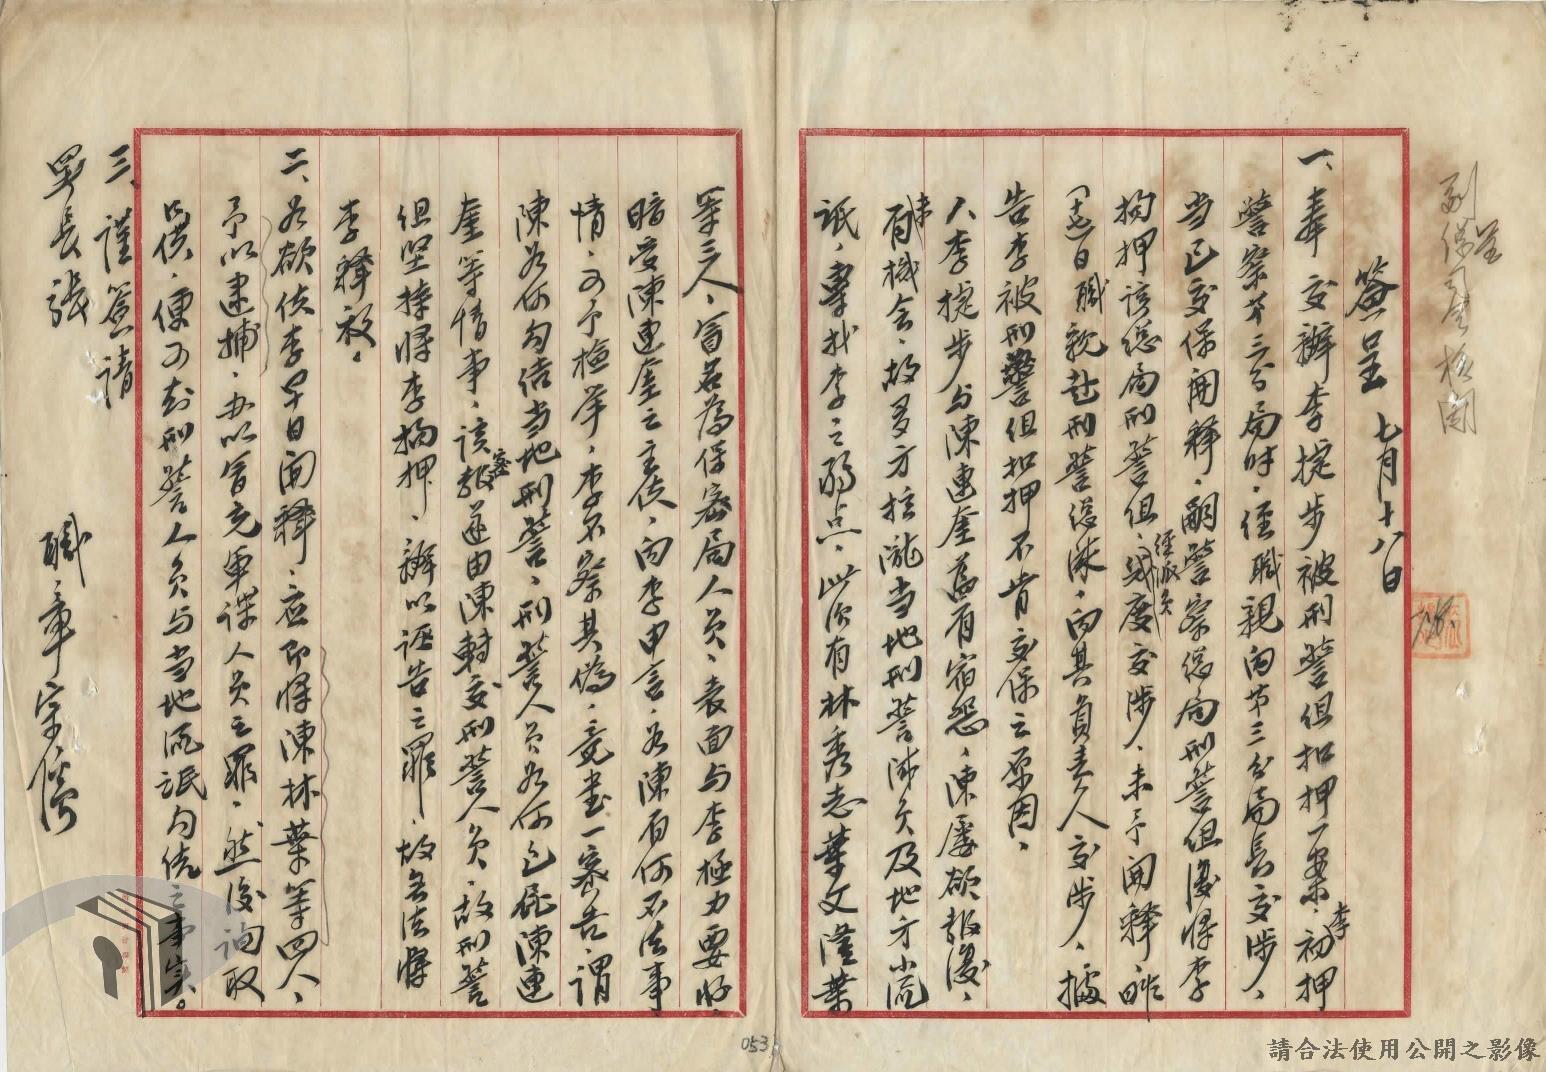 簽呈 七月十八日
一、奉交辦李掟步被刑警組扣押一案、李初押
警察第三分局時、經職親向第三分局長交涉、
當已交保開釋、嗣警察總局刑警組復將李
拘押該總局刑警組、經派員幾度交涉、未予開釋、昨
(十七)日職親赴刑警總隊、向其負責人交涉、據
告李被刑警組扣押不肯交保之原因、
人李掟步与陳連奎舊有宿怨、陳屢欲報復、
未有機會、故多方拉攏當地刑警涉及地方小流
氓、專找李之弱点、此次有林秀志葉文隆葉
等三人、冒名為保密局人員、表面与李極力要好、
暗受陳連奎之主使、向李申言、如陳有何不法事
情、可予檢举、李不察其偽、竟書一密告、謂
陳如何勾結當地刑警、刑警人員如何包庇陳連
奎等情事、該密報並由陳轉交刑警人員、故刑警
組堅持將李拘押、辦以誣告之罪、故無法將
李釋放。
二、如欲使李早日開釋、应即將陳林葉等四人、
予以逮捕、办以冒充軍諜人員之罪、然後詢取
口供、便可對刑警人員与當地流氓勾結之事實。
三、謹簽請
單長張
職 章宗儒
053
請合法使用公開之影像